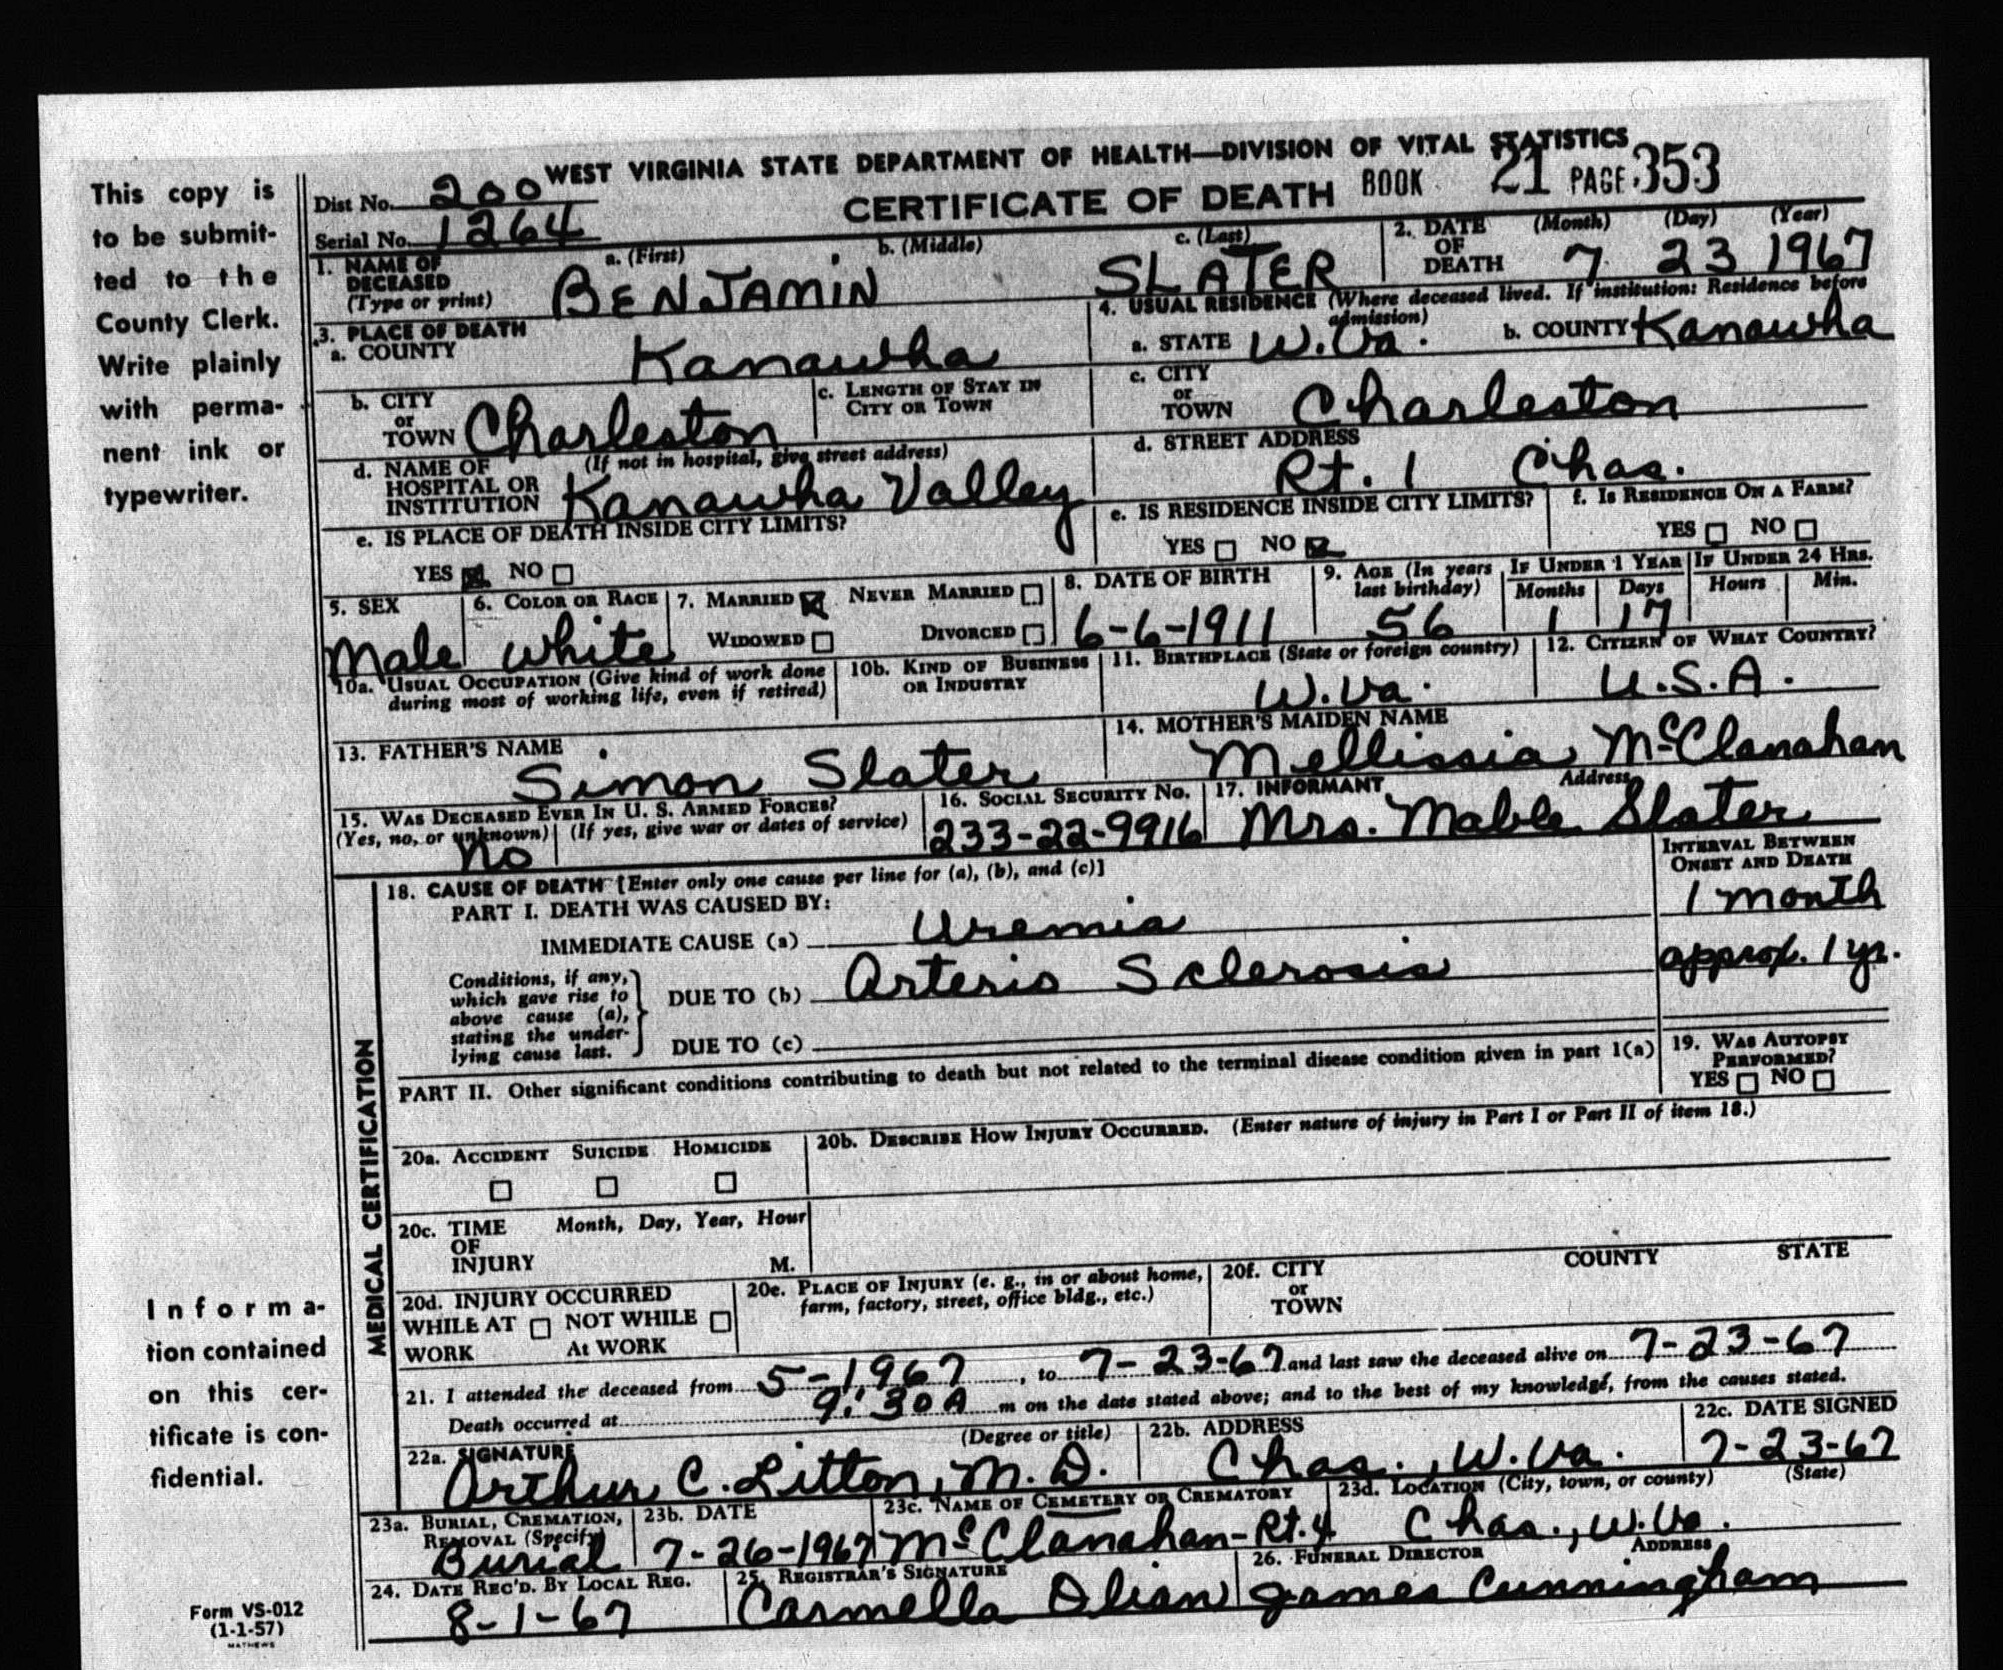 This copy is
to be submit-
ted to the
County Clerk.
Write plainly
with perma-
nent ink or
typewriter.
Informa-
tion contained
on this cer-
tificate is con-
fidential.
Form VS-012
(1-1-57)
MATHEWS
WEST VIRGINIA STATE DEPARTMENT OF HEALTH—DIVISION OF VITAL STATISTICS
Dist No. 200
CERTIFICATE OF DEATH BOOK 21 PAGE 353
Serial No. 1264
1. NAME OF DECEASED (Type or print) a. (First) b. (Middle) c. (Last)
BENJAMIN SLATER
2. DATE OF DEATH (Month) (Day) (Year)
7 23 1967
3. PLACE OF DEATH
a. COUNTY Kanawha
4. USUAL RESIDENCE (Where deceased lived. If institution: Residence before admission)
a. STATE W.Va. b. COUNTY Kanawha
b. CITY or TOWN Charleston
c. LENGTH OF STAY IN CITY OR TOWN
c. CITY or TOWN Charleston
d. NAME OF HOSPITAL OR INSTITUTION (If not in hospital, give street address)
Kanawha Valley
d. STREET ADDRESS
Rt. 1 Chas.
e. IS PLACE OF DEATH INSIDE CITY LIMITS?
YES NO
e. IS RESIDENCE INSIDE CITY LIMITS?
YES NO
f. IS RESIDENCE ON A FARM?
YES NO
5. SEX
Male
6. COLOR OR RACE
White
7. MARRIED NEVER MARRIED
WIDOWED DIVORCED
8. DATE OF BIRTH
6-6-1911
9. AGE (In years last birthday)
56
IF UNDER 1 YEAR
Months Days
1 17
IF UNDER 24 HRS.
Hours Min.
10a. USUAL OCCUPATION (Give kind of work done during most of working life, even if retired)
10b. KIND OF BUSINESS OR INDUSTRY
11. BIRTHPLACE (State or foreign country)
W.Va.
12. CITIZEN OF WHAT COUNTRY?
U.S.A.
13. FATHER'S NAME
Simon Slater
14. MOTHER'S MAIDEN NAME
Mellissia McClanahan
15. WAS DECEASED EVER IN U. S. ARMED FORCES?
(Yes, no, or unknown) (If yes, give war or dates of service)
No
16. SOCIAL SECURITY NO.
233-22-9916
17. INFORMANT Address
Mrs. Mable Slater
MEDICAL CERTIFICATION
18. CAUSE OF DEATH [Enter only one cause per line for (a), (b), and (c)]
INTERVAL BETWEEN ONSET AND DEATH
PART I. DEATH WAS CAUSED BY:
IMMEDIATE CAUSE (a) Uremia 1 month
Conditions, if any, which gave rise to above cause (a), stating the under-lying cause last.
DUE TO (b) Arterio Sclerosis approx. 1 yr.
DUE TO (c)
PART II. Other significant conditions contributing to death but not related to the terminal disease condition given in part 1(a)
19. WAS AUTOPSY PERFORMED?
YES NO
20a. ACCIDENT SUICIDE HOMICIDE
20b. DESCRIBE HOW INJURY OCCURRED. (Enter nature of injury in Part I or Part II of item 18.)
20c. TIME OF INJURY Month, Day, Year, Hour
M.
20d. INJURY OCCURRED
WHILE AT WORK NOT WHILE At WORK
20e. PLACE OF INJURY (e. g., in or about home, farm, factory, street, office bldg., etc.)
20f. CITY or TOWN COUNTY STATE
21. I attended the deceased from 5-1967, to 7-23-67 and last saw the deceased alive on 7-23-67
Death occurred at 9:30A m on the date stated above; and to the best of my knowledge, from the causes stated.
22a. SIGNATURE (Degree or title)
Arthur C. Litton, M.D.
22b. ADDRESS
Chas., W.Va.
22c. DATE SIGNED
7-23-67
23a. BURIAL, CREMATION, REMOVAL (Specify)
Burial
23b. DATE
7-26-1967
23c. NAME OF CEMETERY OR CREMATORY
McClanahan-Rt. 4
23d. LOCATION (City, town, or county) (State)
Chas., W.Va.
24. DATE REC'D. BY LOCAL REG.
8-1-67
25. REGISTRAR'S SIGNATURE
Carmella Olian
26. FUNERAL DIRECTOR ADDRESS
James Cunningham